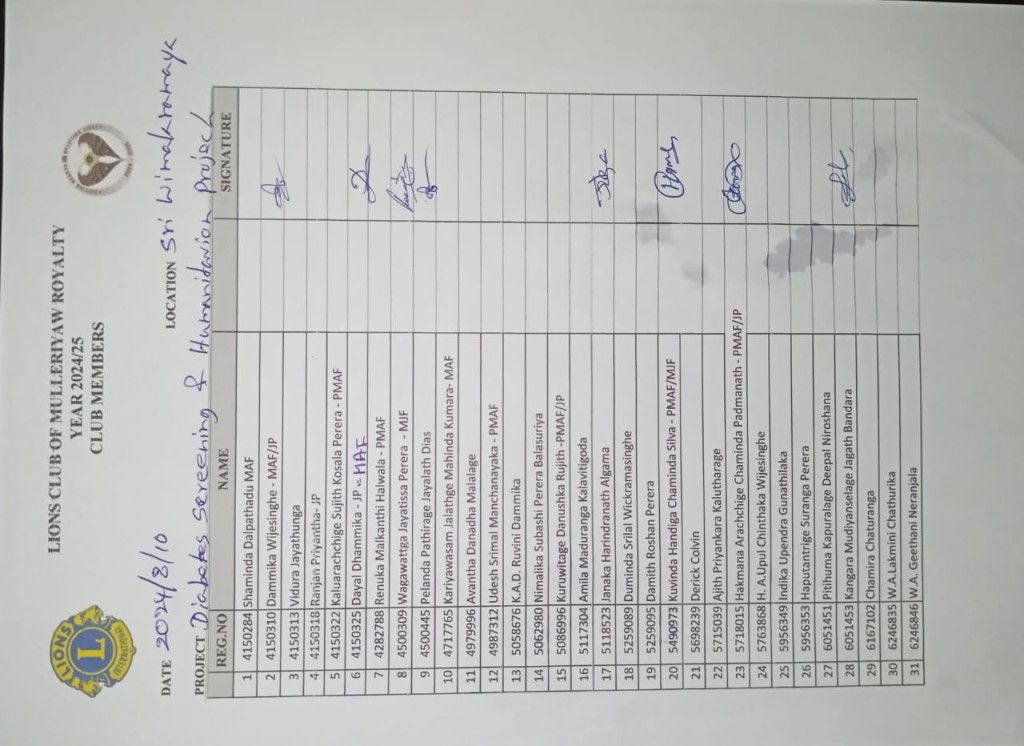 LIONS CLUB OF MULLERIYAW ROYALTY
YEAR 2024/25
CLUB MEMBERS
LIONS
L
INTERNATIONAL
DATE 2024/8/10 LOCATION Sri Wimakramaya
PROJECT Diabetes Screening & Humanitarian Project
REG.NO NAME SIGNATURE
1 4150284 Shaminda Dalpathadu MAF
2 4150310 Dammika Wijesinghe - MAF/JP
3 4150313 Vidura Jayathunga
4 4150318 Ranjan Priyantha- JP
5 4150322 Kaluarachchige Sujith Kosala Perera - PMAF
6 4150325 Dayal Dhammika - JP - MAF
7 4282788 Renuka Malkanthi Halwala - PMAF
8 4500309 Wagawattga Jayatissa Perera - MJF
9 4500445 Pelanda Pathirage Jayalath Dias
10 4717765 Kariyawasam Jalathge Mahinda Kumara- MAF
11 4979996 Avantha Danadha Malalage
12 4987312 Udesh Srimal Manchanayaka - PMAF
13 5058676 K.A.D. Ruvini Dammika
14 5062980 Nimalika Subashi Perera Balasuriya
15 5086996 Kuruwitage Danushka Rujith -PMAF/JP
16 5117304 Amila Maduranga Kalavitigoda
17 5118523 Janaka Harindranath Algama
18 5259089 Duminda Srilal Wickramasinghe
19 5259095 Damith Roshan Perera
20 5490973 Kuvinda Handiga Chaminda Silva - PMAF/MJF
21 5698239 Derick Colvin
22 5715039 Ajith Priyankara Kalutharage
23 5718015 Hakmana Arachchige Chaminda Padmanath - PMAF/JP
24 5763868 H. A.Upul Chinthaka Wijesinghe
25 5956349 Indika Upendra Gunathilaka
26 5956353 Haputantrige Suranga Perera
27 6051451 Pitihuma Kapuralage Deepal Niroshana
28 6051453 Kangara Mudiyanselage Jagath Bandara
29 6167102 Chamira Chaturanga
30 6246835 W.A.Lakmini Chathurika
31 6246846 W.A. Geethani Neranjala